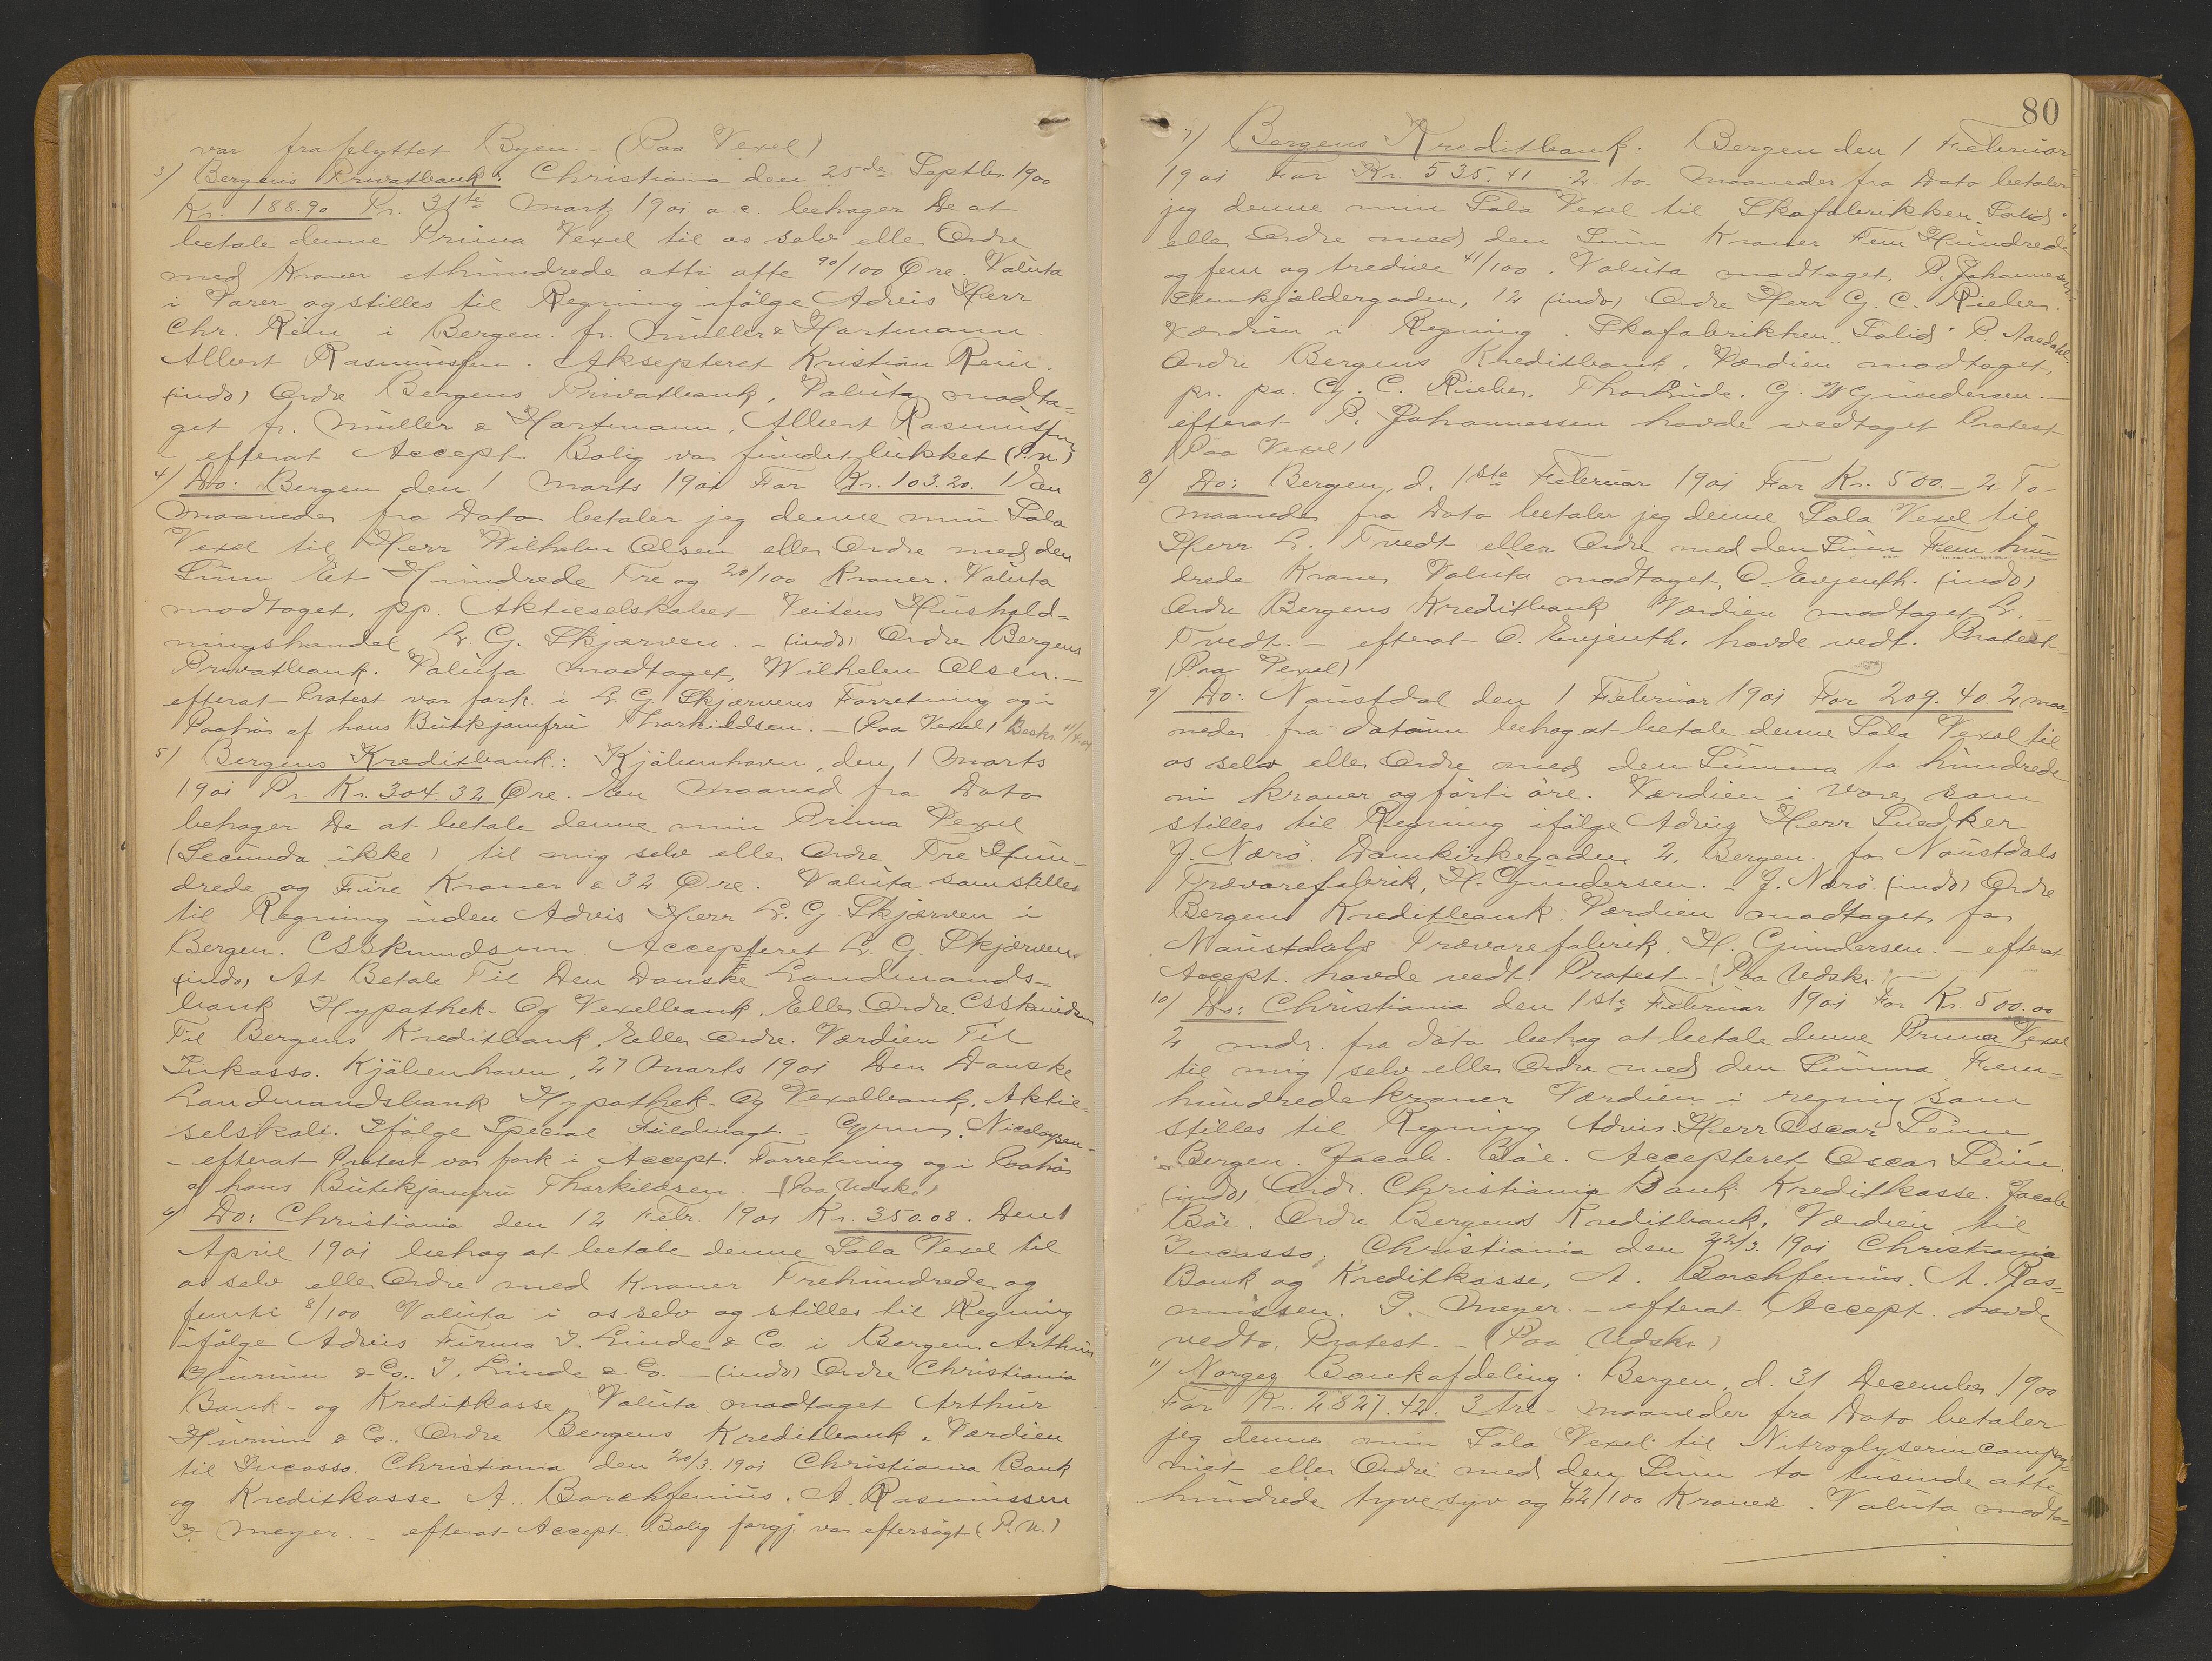 var fraflyttet Byen. - (Paa Vexel)
3) Bergens Privatbank: Christiania den 25de Septbr. 1900
Kr. 188.90 Pr. 31te Marts 1901 a.c. behager De at
betale denne Prima Vexel til os selv eller Ordre
med Kroner ethundrede otti otte 90/100 Øre. Valuta
i Varer og stilles til Regning ifölge Advis Herr
Chr. Rein i Bergen. fr. Müller & Hartmann
Albert Rasmussen. Aksepteret Kristian Rein.
(indo) Ordre Bergens Privatbank, Valuta modta=
get fr. Müller & Hartmann, Albert Rasmussen
- efterat Accept. Bolig var fundet lukket (P.n.)
4) Do: Bergen den 1 Marts 1901 For Kr. 103.20. 1 Den
Maaneder fra Dato betaler jeg denne min Sola
Vexel til Herr Wilhelm Olsen eller Ordre med den
Sum Et Hundrede Tre og 20/100 Kroner. Valuta
modtaget, pp. Aktieselskabet Veitens Hushold=
ningshandel L. G. Skjærven. - (indo) Ordre Bergens
Privatbank. Valuta modtaget, Wilhelm Olsen. -
efterat Protest var fork. i L. G. Skjærvens Forretning og i
Paahör af hans Butikjomfru Thorkildsen. - (Paa Vexel) Beskr. 11/4.01
5) Bergens Kreditbank: Kjöbenhavn, den 1 Marts
1901 Pr. Kr. 304.32 Øre. En Maaned fra Dato
behager De at betale denne min Prima Vexel
(Secunda ikke) til mig selv eller Ordre Tre Hun-
drede og Fire Kroner & 32 Øre. Valuta som stilles
til Regning uden Advis Herr L. G. Skjærven i
Bergen. C S Skundsen. Accepteret L. G. Skjærven.
(indo) At Betale Til Den Danske Landmands=
bank Hypothek- Og Vexelbank, Eller Ordre. C S Skundsen
Til Bergens Kreditbank, Eller Ordre. Værdien Til
Inkasso. Kjöbenhavn, 27 Marts 1901 Den Danske
Landmandsbank Hypothek- Og Vexelbank, Aktie=
selskab. Ifölge Special Fuldmagt Nicolaysen.
- efterat Protest var fork i Accept. Forretning og i Paahör
af hans Butikjomfru Thorkildsen. (Paa Udsk.)
6) Do: Christiania den 12 Febr. 1901 Kr. 350.08. Den 1
April 1901 behag at betale denne Sola Vexel til
os selv eller Ordre med Kroner Trehundrede og
femti 8/100 Valuta i os selv og stilles til Regning
ifölge Advis Firma I. Linde & Co. i Bergen. Arthur
Hurum & Co., I. Linde & Co. - (indo) Ordre Christiania
Bank- og Kreditkasse Valuta modtaget Arthur
Hurum & Co. Ordre Bergens Kreditbank. Værdien
til Incasso. Christiania den 20/3. 1901 Christiania Bank
og Kreditkasse A. Borchfenius. A. Rasmussen
P. Meyer. - efterat Accept. Bolig forgj. var eftersögt (P.n.)
80
7) Bergens Kreditbank: Bergen den 1 Februar
1901 For Kr. 535.41 2 to Maaneder fra Dato betaler
jeg denne min Sola Vexel til Skofabrikken "Solid"
eller Ordre med den Sum Kroner Fem Hundrede
og fem og tredive 41/100. Valuta modtaget, P. Johannessen
Stenkjældergaden, 12 (indo) Ordre Herr G. C. Rieber.
Værdien i Regning. Skofabrikken "Solid" P. Aasdahl.
Ordre Bergens Kreditbank, Værdien modtaget,
pr. pa. G. C. Rieber. G. W Gundersen. -
efterat P. Johannessen havde vedtaget Protest
(Paa Vexel)
8) Do: Bergen, d. 1ste Februar 1901 For Kr. 500. - 2 To-
maaneder fra Dato betaler jeg denne Sola Vexel til
Herr L. Tvedt eller Ordre med den Sum Fem hun
drede Kroner Valuta modtaget, O. Enjenth. (indo)
Ordre Bergens Kreditbank Værdien modtaget L.
Tvedt. - efterat O. Enjenth. havde vedt. Protest. -
(Paa Vexel)
9) Do: Naustdal den 1 Februar 1901 For 209.40. 2 maa-
neder fra datoum behag at betale denne Sola Vexel til
os selv eller Ordre med den Summa to hundrede
ni kroner og förti öre. Værdien i Varer som
stilles til Regning ifölge Advis Herr Snedker
J. Nærö. Domkirkegaden 2, Bergen. for Naustdals
Trævarefabrik, H. Gundersen. - J. Nærö. (indo) Ordre
Bergens Kreditbank. Værdien modtaget for
Naustdals Trævarefabrik. H. Gundersen. - efterat
Accept. havde vedt. Protest - (Paa Udsk.)
10) Do: Christiania den 1ste Februar 1901 For Kr. 500.00
2 mdr. fra dato behag at betale denne Prima Vexel
til mig selv eller Ordre med den Summa Fem=
hundredekroner Værdien i regning som
stilles til Regning Advis. Herr Oscar Leine,
Bergen. Jacob. Böe. Accepteret Oscar Leine.
(indo) Ordr. Christiania Bank Kreditkasse. Jacob
Böe. Ordre Bergens Kreditbank, Værdien til
Incasso. Christiania den 22/3. 1901 Christiania
Bank og Kreditkasse, A. Borchfenius. A. Ras-
mussen. P. Meyer. - efterat Accept. havde
vedto. Protest. - (Paa Udsk.)
11) Norges Bankafdeling: Bergen, d. 31 December 1900
For Kr. 2827.42. 3 tre- Maaneder fra Dato betaler
jeg denne min Sola Vexel til Nitroglyserincompag-
niet eller Ordre med den Sum to tusinde otte
hundrede tyve syv og 42/100 Kroner. Valuta modta=